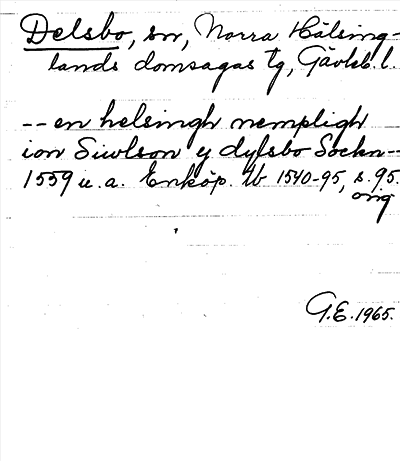 Delsbo, sn, Norra Hälsing-
lands domsagas tg, Gävleb. l.
-- en helsingh nempligh
ion Siwlson y dylsbo Sockn--
1559 u. a. Enköp. tb 1540-95, s. 95.
orig
G.E. 1965.